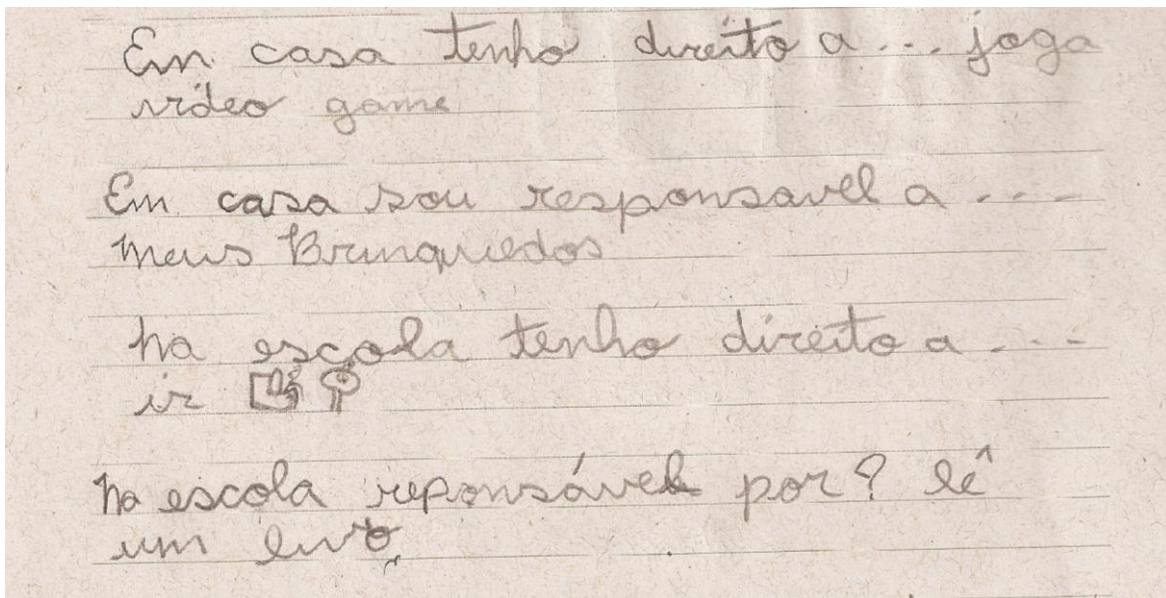 Em casa tenho direito a... joga
video game
Em casa sou responsavel a ...
Meus Brinquedos
na escola tenho direito a ...
ir
na escola reponsável por? lê
um livo